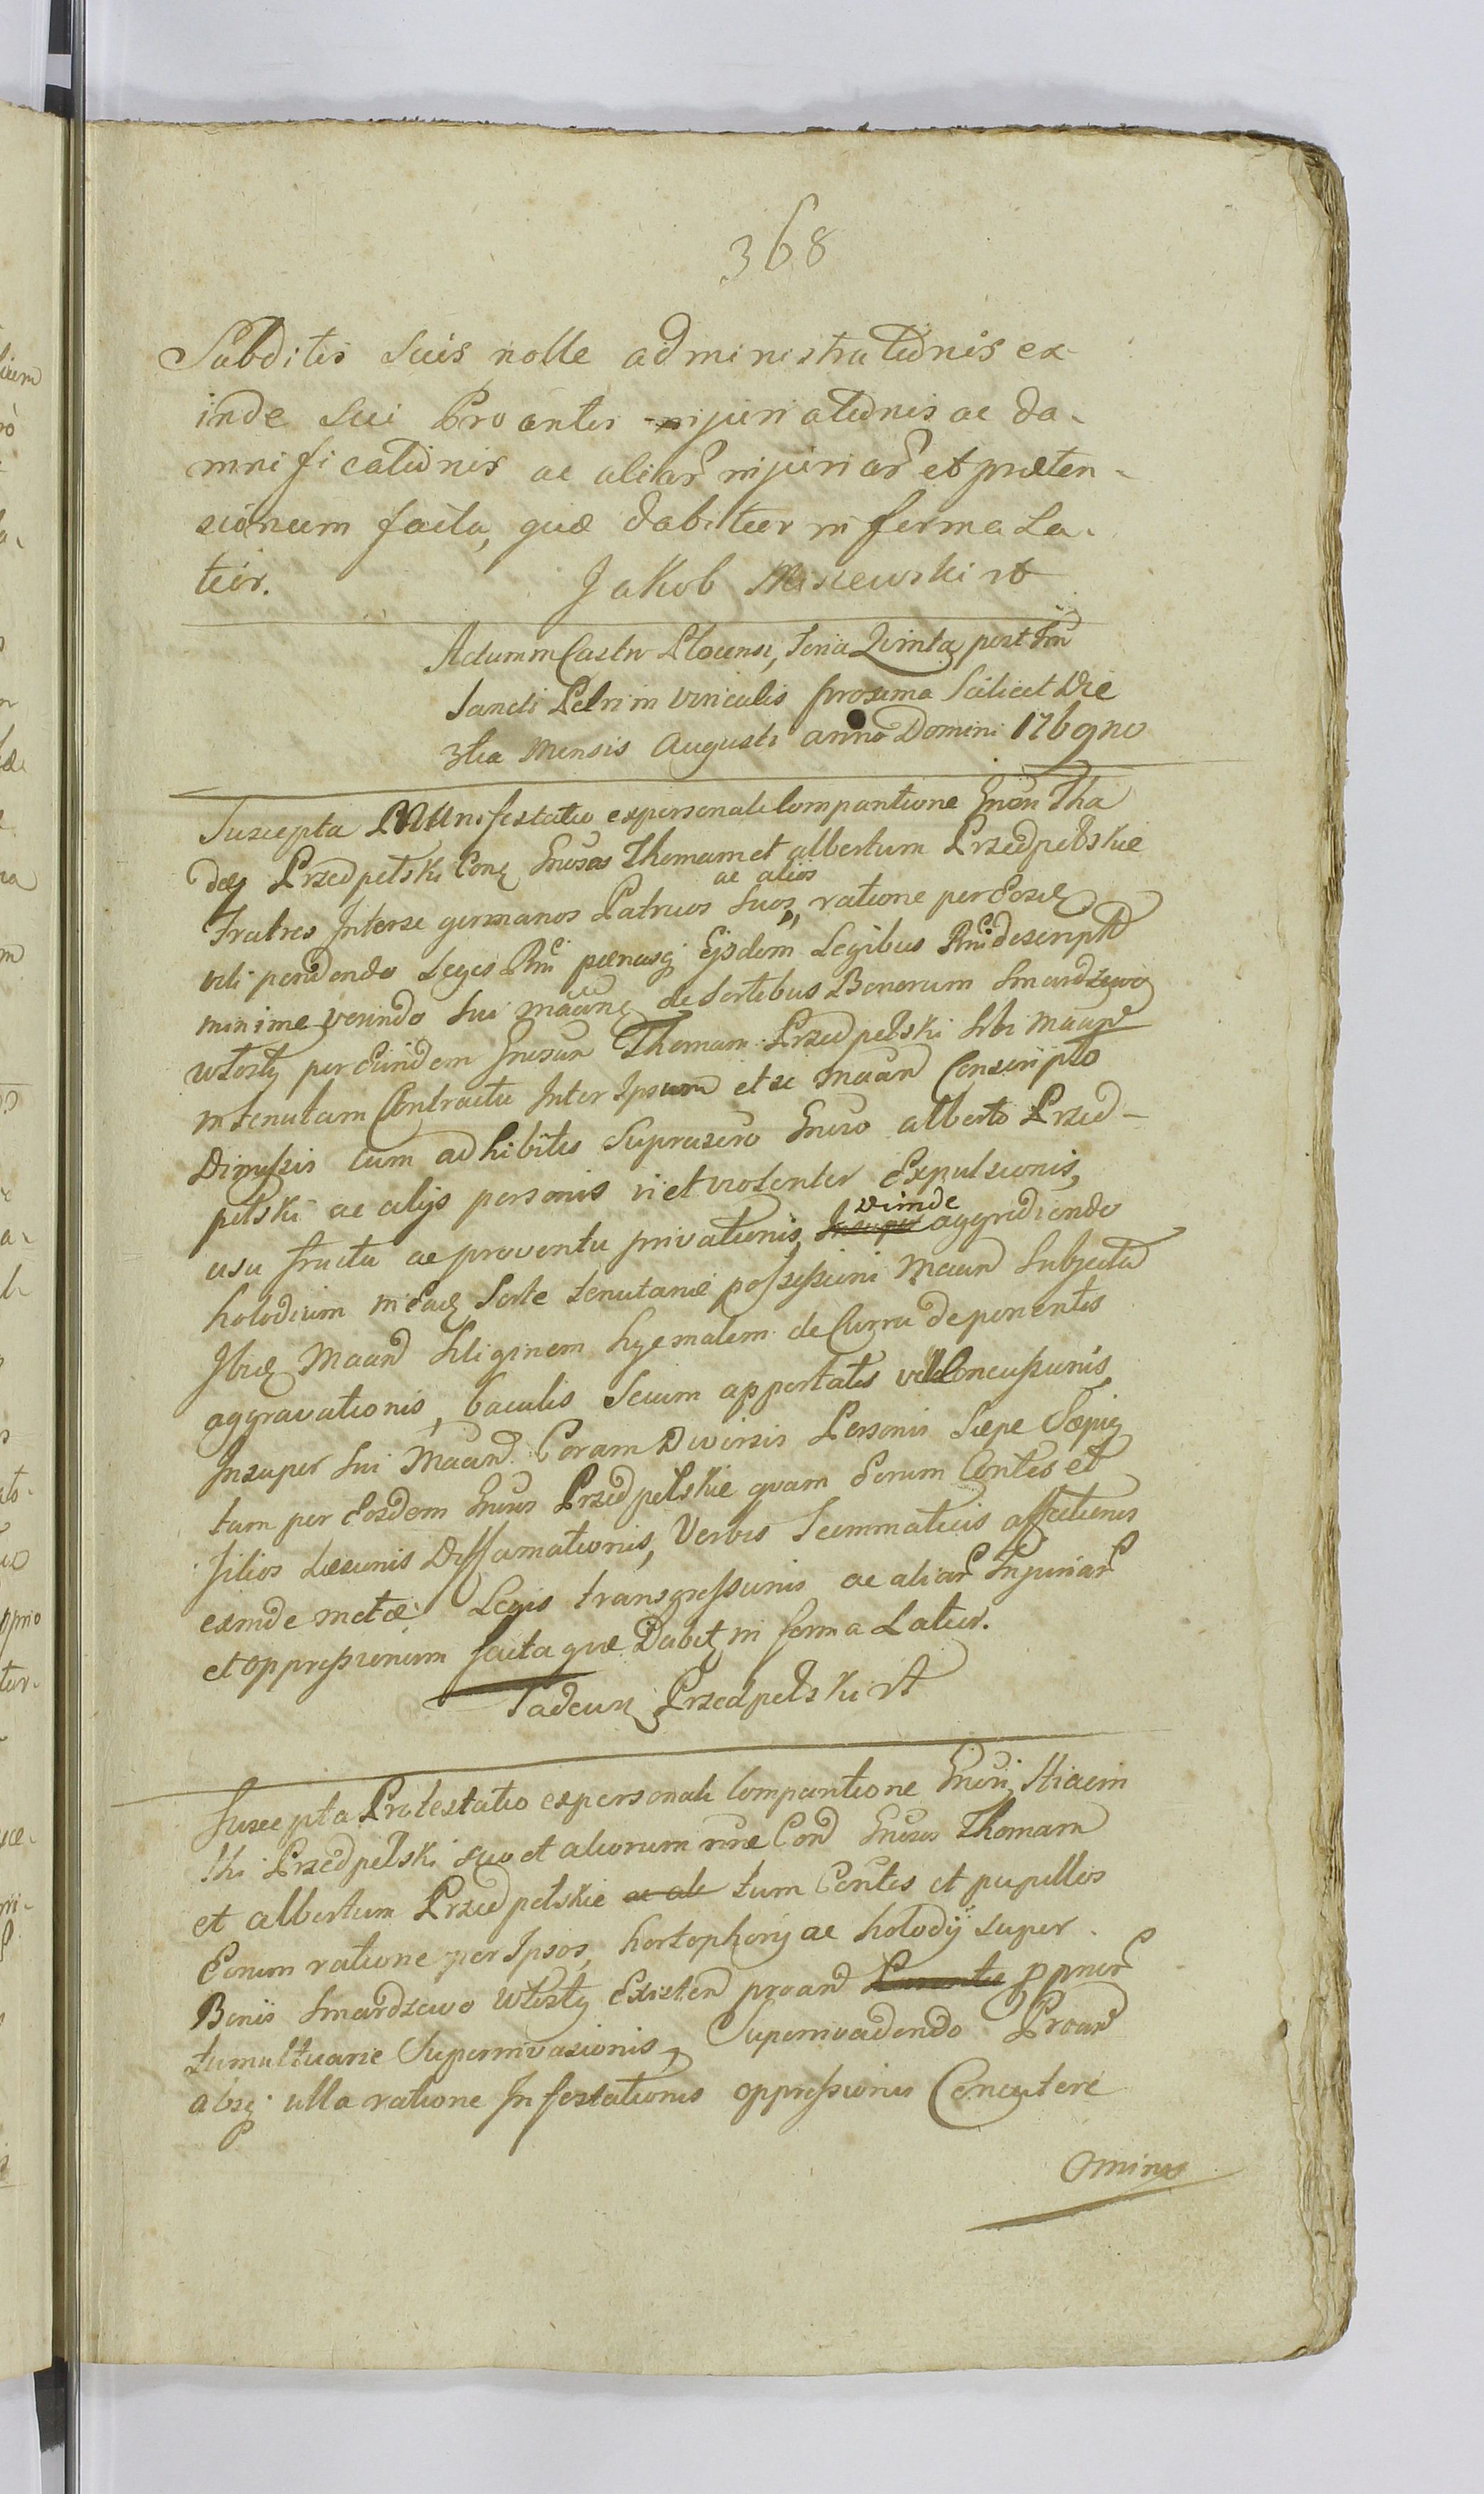 368
Subditis Suis nolle administrationis ex
inde Sui Proantis injuriationis ac da-
mnificationis ac aliar injuriar et præten-
sionum facta, quæ dabitur in forma La-
tior. Jakob Miszewski
Actum in Castro Plocensi, Feria Quinta post Fm
Sancti Petri in Vinculis proxima Scilicet Die
3tia Mensis Augusti anno Domini 1769no
Suscepta Manifestatio ex personali Comparitione Gnosi Tha
dæi Przedpełski Conq Gnosos Thomam et albertum Przedpełskie
ac alios
Fratres Inter se germanos Patruos Suos, ratione per Eosd
vili pendendo Leges Rni pœnasq Ejsdem Legibus Rni descript
minime verendo Sui maane de Sortibus Bonorum Smardzewo
wtosty per Eundem Gnosum Thomam Przedpełski Sibi maan
in tenutam Contractu Inter Ipsum et se maan Conscripto
Dimissis cum adhibitis Suprascro Gnoso alberto Przed-
pełski ac alijs personis vi et violenter Expulsionis,
vimde
usu fructu ac proventu privationis, aggrediendo
holodium in Ead Sorte tenutariæ possessioni Maan Subjecta
Ibid Maan Siliginem hyemalem de Curru deponentis
aggravationis, baculis Secum apportatis Concussionis
Insuper Sui Maan Coram Diversis Personis Sæpe Sæpiq
tam per Eosdem Gnosos Przedpełskie quam Eorum Contes et
filios Læsionis Diffamationis, Verbis Scommaticis affectionis
exinde metæ Legis transgressionis ac aliar Injuriar
et oppressionum facta quæ Dabit in forma Latior.
Tadeusz Przedpełski
Suscepta Protestatio ex personali Comparitione Gnosi Hiacin
thi Przedpełski suo et aliorum nne Con Gnosos Thomam
et albertum Przedpełskie ac ali tum Contes et pupillos
Eorum ratione per Ipsos, hortophorij ac holodij super
Bonis Smardzewo wtosty Existen proan ppriar
tumultuarie Superinvasionis, Superinvadendo Proan
absq ulla ratione Infestationis oppressionis Concutere
Ominus